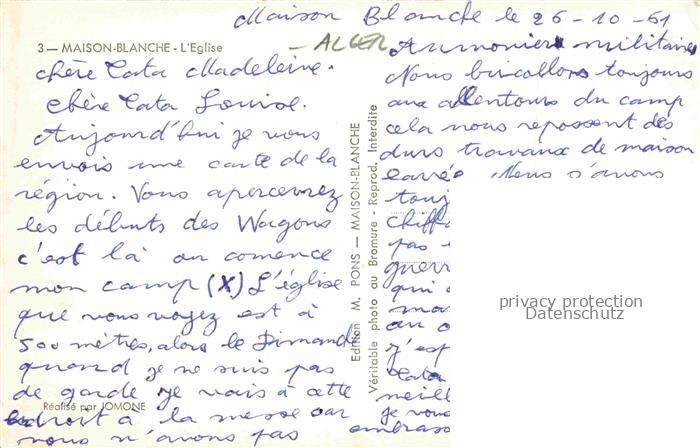 Maison Blanche le 26-10-61
3 — MAISON-BLANCHE - L'Eglise
- ALGER
chère Tata Madeleine.
chère Tata Louise.
Aujourd'hui je vous
envois une carte de la
région. Vous apercevrez
les débuts des Wagons
c'est là ou comence
mon camp (X) L'église
que vous voyez est à
500 mètres, alors le Dimanche
quand je ne suis pas
de garde je vais à cette
endroit à la messe car
nous n'avons pas
Réalisé par JOMONE
Edition M. PONS — MAISON-BLANCHE
Véritable photo au Bromure - Reprod. Interdite
Aumonier militaire
Nous bricollons toujours
aux allentours du camp
cela nous repossent des
durs travaux de maison
carrée. Nous s'avons
touj
chiff
pas
guerr
qui
ma
au
j'esp
tata
meill
je vous
embrass
privacy protection
Datenschutz